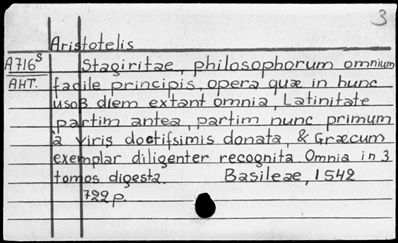 3
Aristotelis
A716s Stagiritae, philosophorum omnium
AHT. facile principis, opera quæ in hunc
usoß diem extant omnia, Latinitate
partim antea, partim nunc primum
à viris doctifsimis donata, & Græcum
exemplar diligenter recognita. Omnia in 3
tomos digesta. Basileae, 1542
722p.